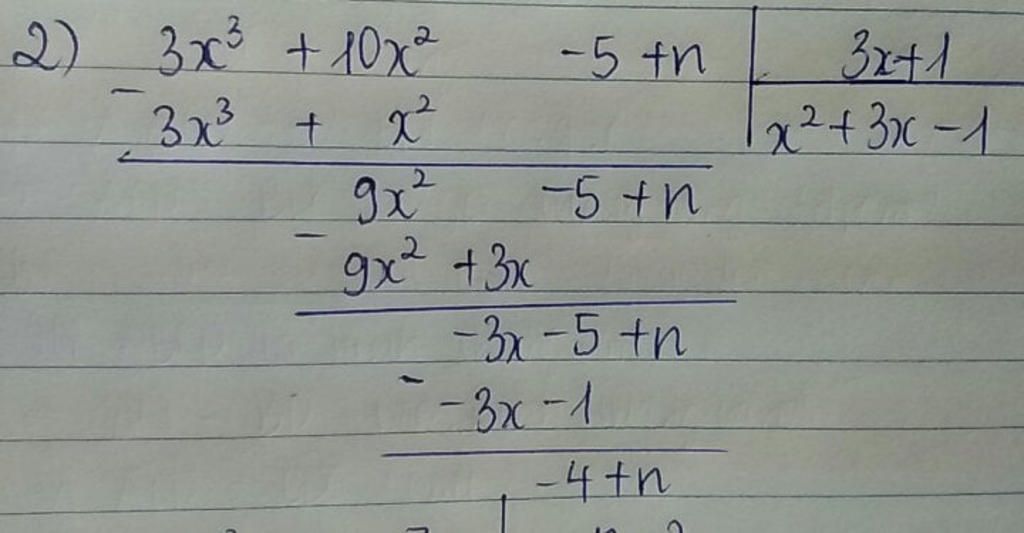 2) 3x³ + 10x² -5 +n | 3x+1
- 3x³ + x² | x² + 3x - 1
9x² -5 +n
- 9x² +3x
-3x -5 +n
- -3x -1
-4 +n